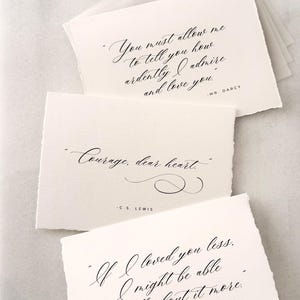 "You must allow me
to tell you how
ardently I admire
and love you."
MR. DARCY
"Courage, dear heart."
-C.S. LEWIS
"If I loved you less,
I might be able
it more."